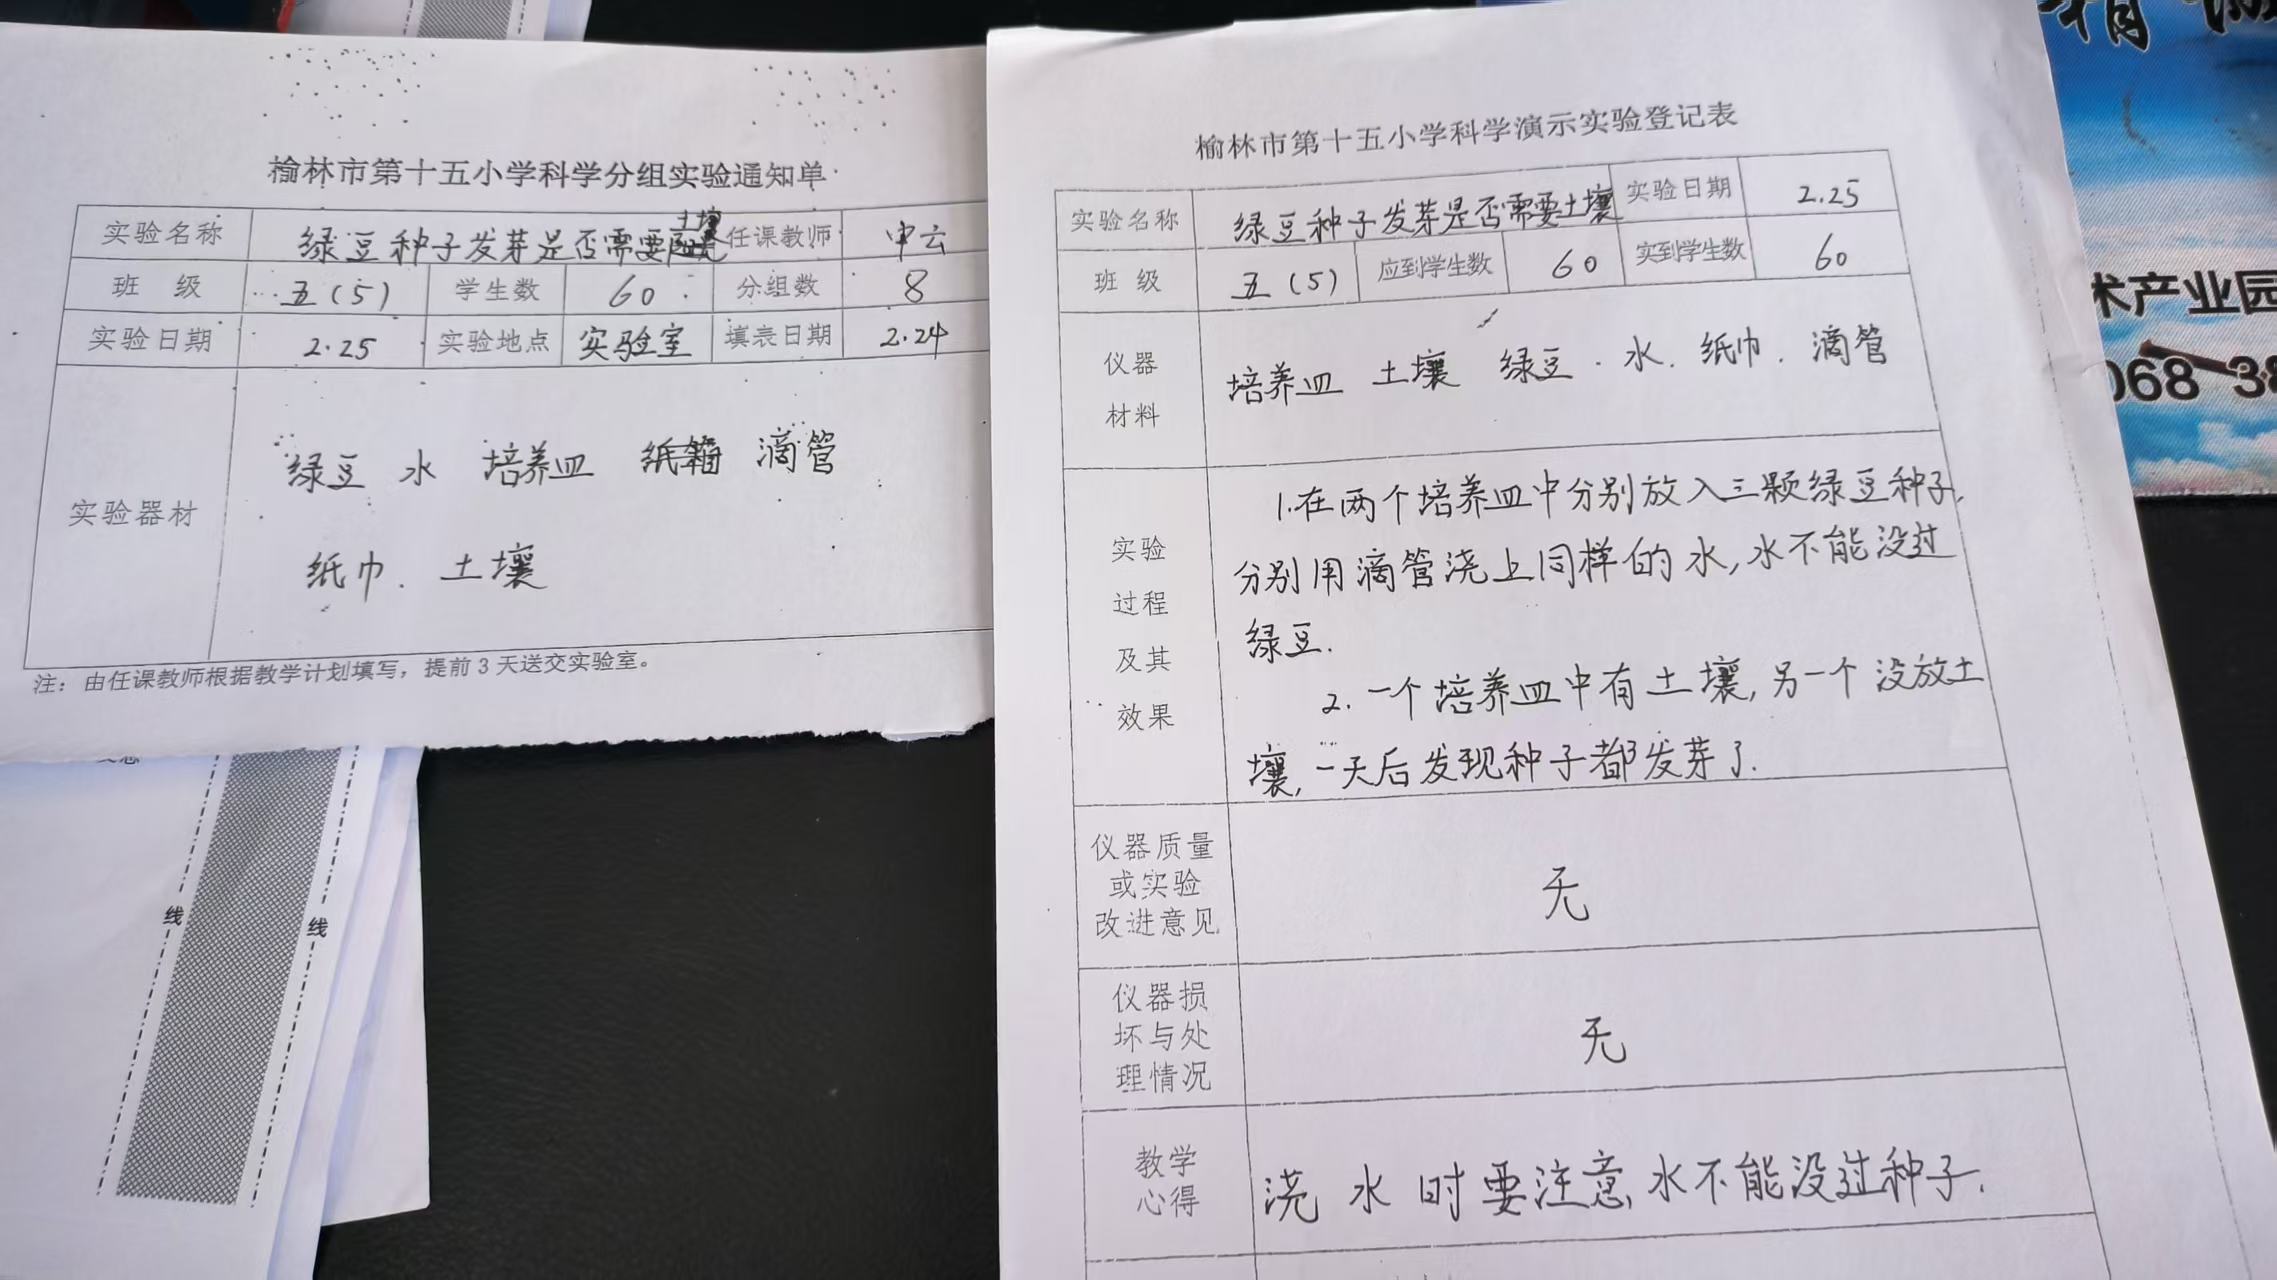 榆林市第十五小学科学分组实验通知单
实验名称 绿豆种子发芽是否需要土壤 任课教师 申云
班 级 五(5) 学生数 60 分组数 8
实验日期 2.25 实验地点 实验室 填表日期 2.24
实验器材
绿豆 水 培养皿 纸箱 滴管
纸巾. 土壤
注：由任课教师根据教学计划填写，提前3天送交实验室。
线
线
榆林市第十五小学科学演示实验登记表
实验名称 绿豆种子发芽是否需要土壤 实验日期 2.25
班 级 五(5) 应到学生数 60 实到学生数 60
仪器
材料
培养皿 土壤 绿豆. 水. 纸巾. 滴管
实验
过程
及其
效果
1.在两个培养皿中分别放入三颗绿豆种子,
分别用滴管浇上同样的水,水不能没过
绿豆.
2.一个培养皿中有土壤,另一个没放土
壤,一天后发现种子都发芽了.
仪器质量
或实验
改进意见
无
仪器损
坏与处
理情况
无
教学
心得
浇水时要注意,水不能没过种子.
术产业园
068 38